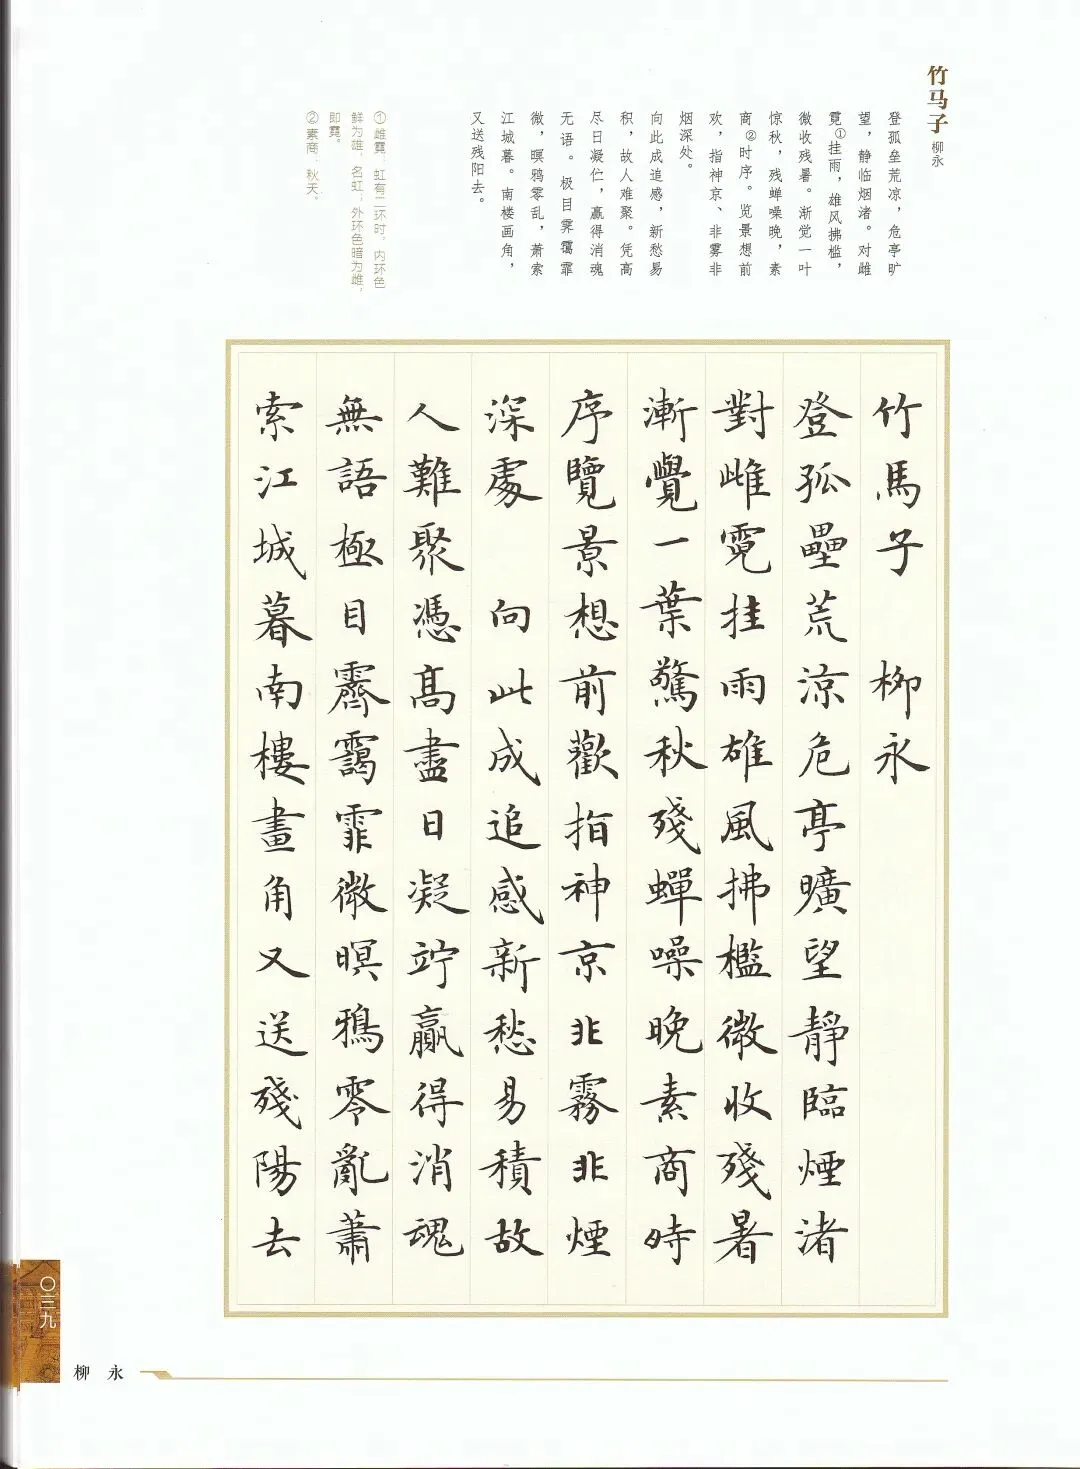 竹马子 柳永
登孤垒荒凉，危亭旷
望，静临烟渚。对雌
霓①挂雨，雄风拂槛，
微收残暑。渐觉一叶
惊秋，残蝉噪晚，素
商②时序。览景想前
欢，指神京、非雾非
烟深处。
向此成追感，新愁易
积，故人难聚。凭高
尽日凝伫，赢得消魂
无语。极目霁霭霏
微，暝鸦零乱，萧索
江城暮。南楼画角，
又送残阳去。
①雌霓：虹有二环时，内环色
鲜为雄，名虹；外环色暗为雌，
即霓。
②素商：秋天。
竹馬子 柳永
登孤壘荒涼危亭曠望靜臨煙渚
對雌霓挂雨雄風拂檻微收殘暑
漸覺一葉驚秋殘蟬噪晚素商時
序覽景想前歡指神京非霧非煙
深處 向此成追感新愁易積故
人難聚憑高盡日凝竚贏得消魂
無語極目霽靄霏微暝鴉零亂蕭
索江城暮南樓畫角又送殘陽去
〇三九
柳永